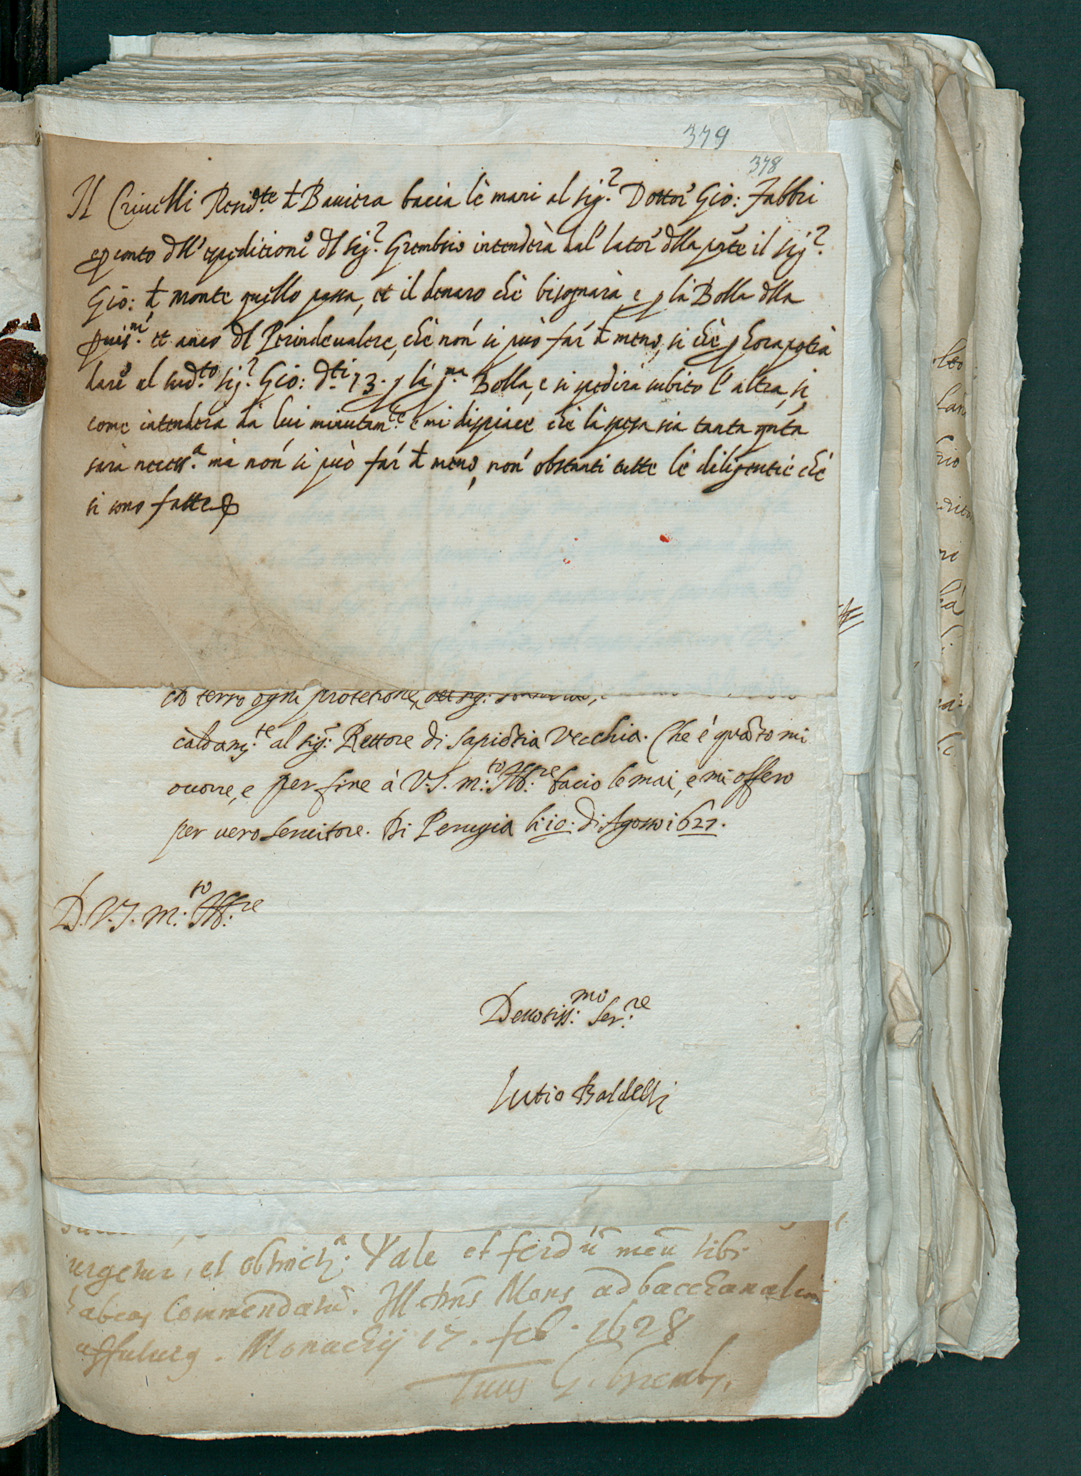 379
378
Il Criuelli Resid.te di Bauiera bacia le mani al sig.r Dottor Gio: Fabbri
conto dell' espeditione del Sig.r Grembsio intenderà dal lator della pnte il sig.r
Gio: di Monte quello passa, et il denaro che bisognarà, e p la Bolla della
et anco del Perindeualere, che non si può far di meno, si che p hora potrà
dare al sud.to sig.r Gio: d.ti 73. p la p.ma Bolla, e si spedirà subito l' altra, si
come intenderà da lui minutam.te e mi dispiace che la spesa sia tanta
sarà necess.a mà non si può far di meno, non obstanti tutte le diligentie che
si sono fatte
terrò ogni protetione,
caldam.te al sig.r Rettore di Sapientia Vecchia. Che è quanto mi
occorre, e per fine à V.S. m.to Ill.re bacio le mani, e mi offero
per vero seruitore. Di Perugia li 10: di Agosto 1627.
D. V.S. m.to Ill.re
Deuotiss.mo Ser.re
Lutio Baldelli
urgetur, et Vale et ferd.um meum tibi
habeas Commendatum. Mons ad bacchanalia
affuturus. Monachij 17. feb. 1628
Tuus G.